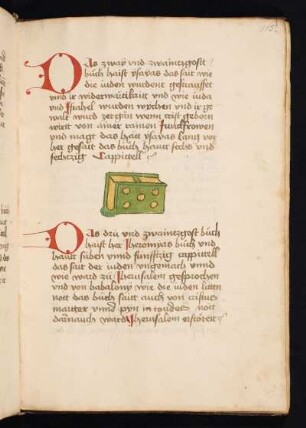 Das zway vnd zwaintzgost
bůch haist ysayas das sait wie
die iuden wurdent gestrauffet
vnd ir widerwärtikait vnd wie iuda
vnd Israhel wurden
walt ward zergän wenn crist geborn
wirt von ainer rainen Junckfrowen
vnd magt das hatt ysayas lang vor
her gesait das bůch haut sechs vnd
sechtzig Cappittell
Das drü vnd zwaintzgost bůch
haist her Jheromias bůch vnd
hautt siben vnnd fünfftzig cappittell
das sait der iuden vngemach vnnd
wie ward zů Jherusalem gesprochen
vnd von babalony wie die iuden litten
nott das bůch sait auch von cristus
marter vnnd pyn in todes nott
darnauch ward Jherusalem erstöret